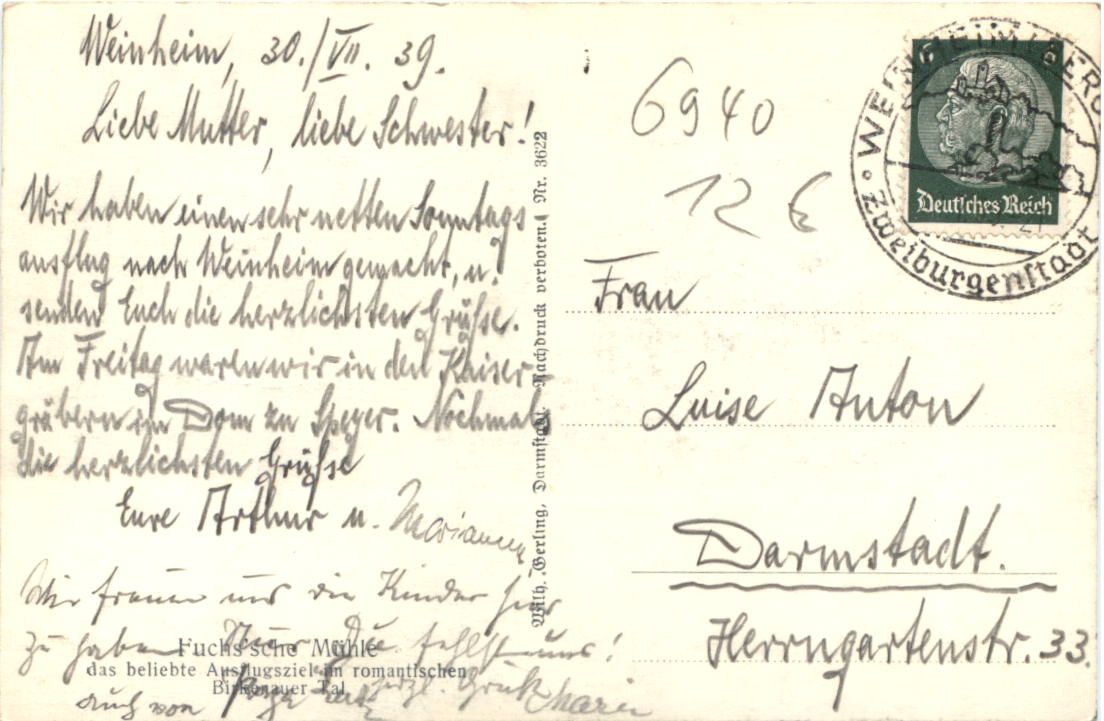 Weinheim, 30./VII. 39.
Liebe Mutter, liebe Schwester!
Wir haben einen sehr netten Sonntags
ausflug nach Weinheim gemacht, u.
senden Euch die herzlichsten Grüße.
Am Freitag waren wir in den Kaiser-
gräbern im Dom zu Speyer. Nochmals
die herzlichsten Grüße
Eure Arthur u. Marianne
Wir freuen uns die Kinder hier
zu haben. Nur Du fehlst uns!
Auch von herzl. Gruß Marie
Fuchs'sche Mühle
das beliebte Ausflugsziel im romantischen
Birkenauer Tal.
Wilh. Gerling, Darmstadt. Nachdruck verboten. Nr. 3622
6940
12 €
6
Deutsches Reich
WEINHEIM (BERG
Zweiburgenstadt
Frau
Luise Anton
Darmstadt.
Herrngartenstr. 33.